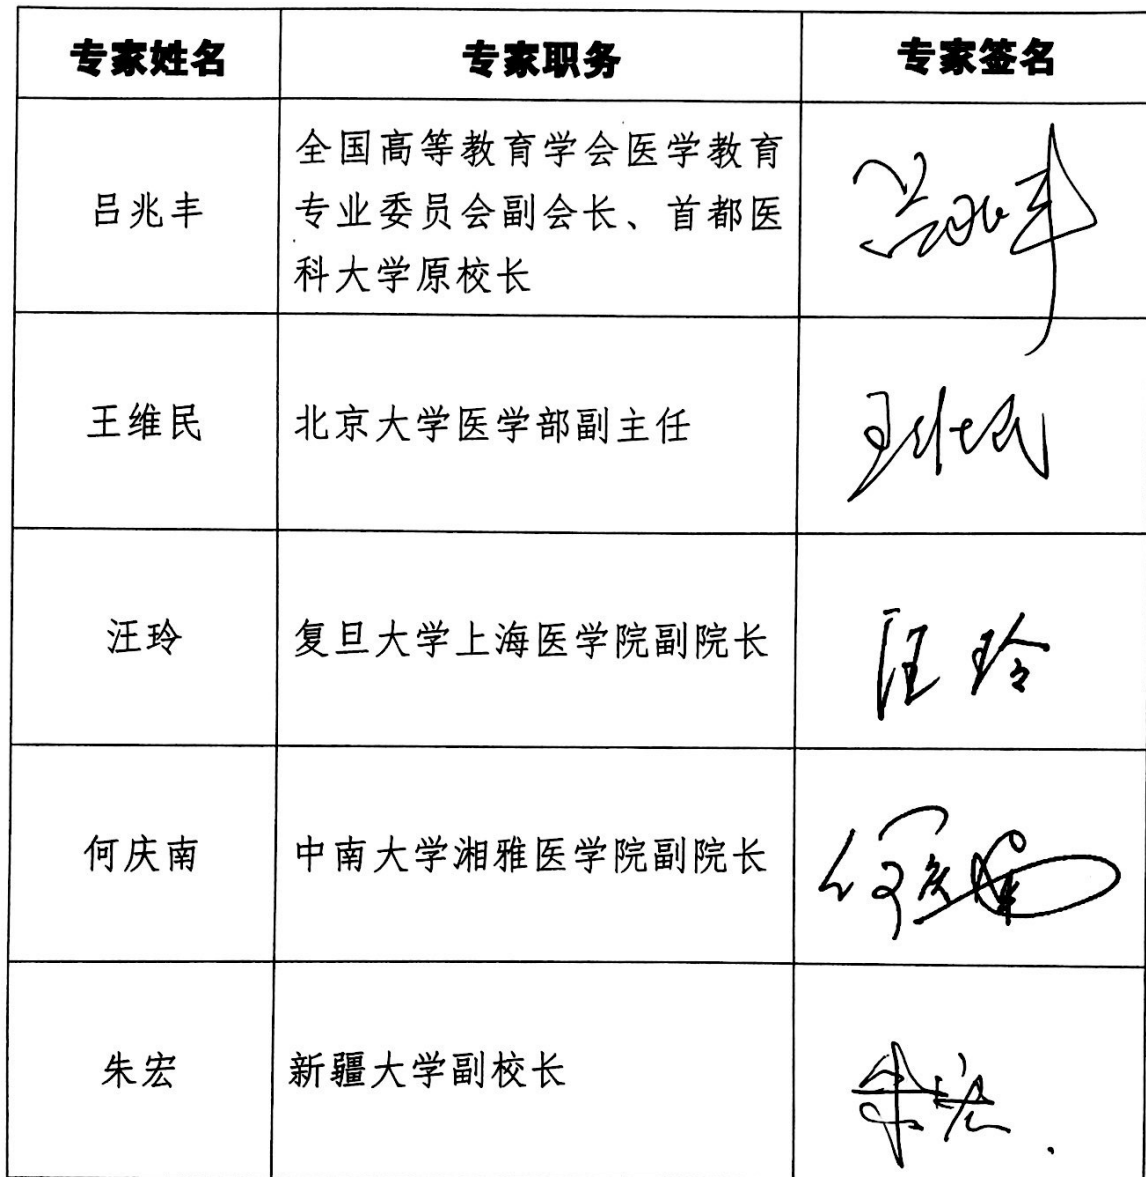 专家姓名 专家职务 专家签名
吕兆丰 全国高等教育学会医学教育
专业委员会副会长、首都医
科大学原校长 吕兆丰
王维民 北京大学医学部副主任 王维民
汪玲 复旦大学上海医学院副院长 汪玲
何庆南 中南大学湘雅医学院副院长 何庆南
朱宏 新疆大学副校长 朱宏